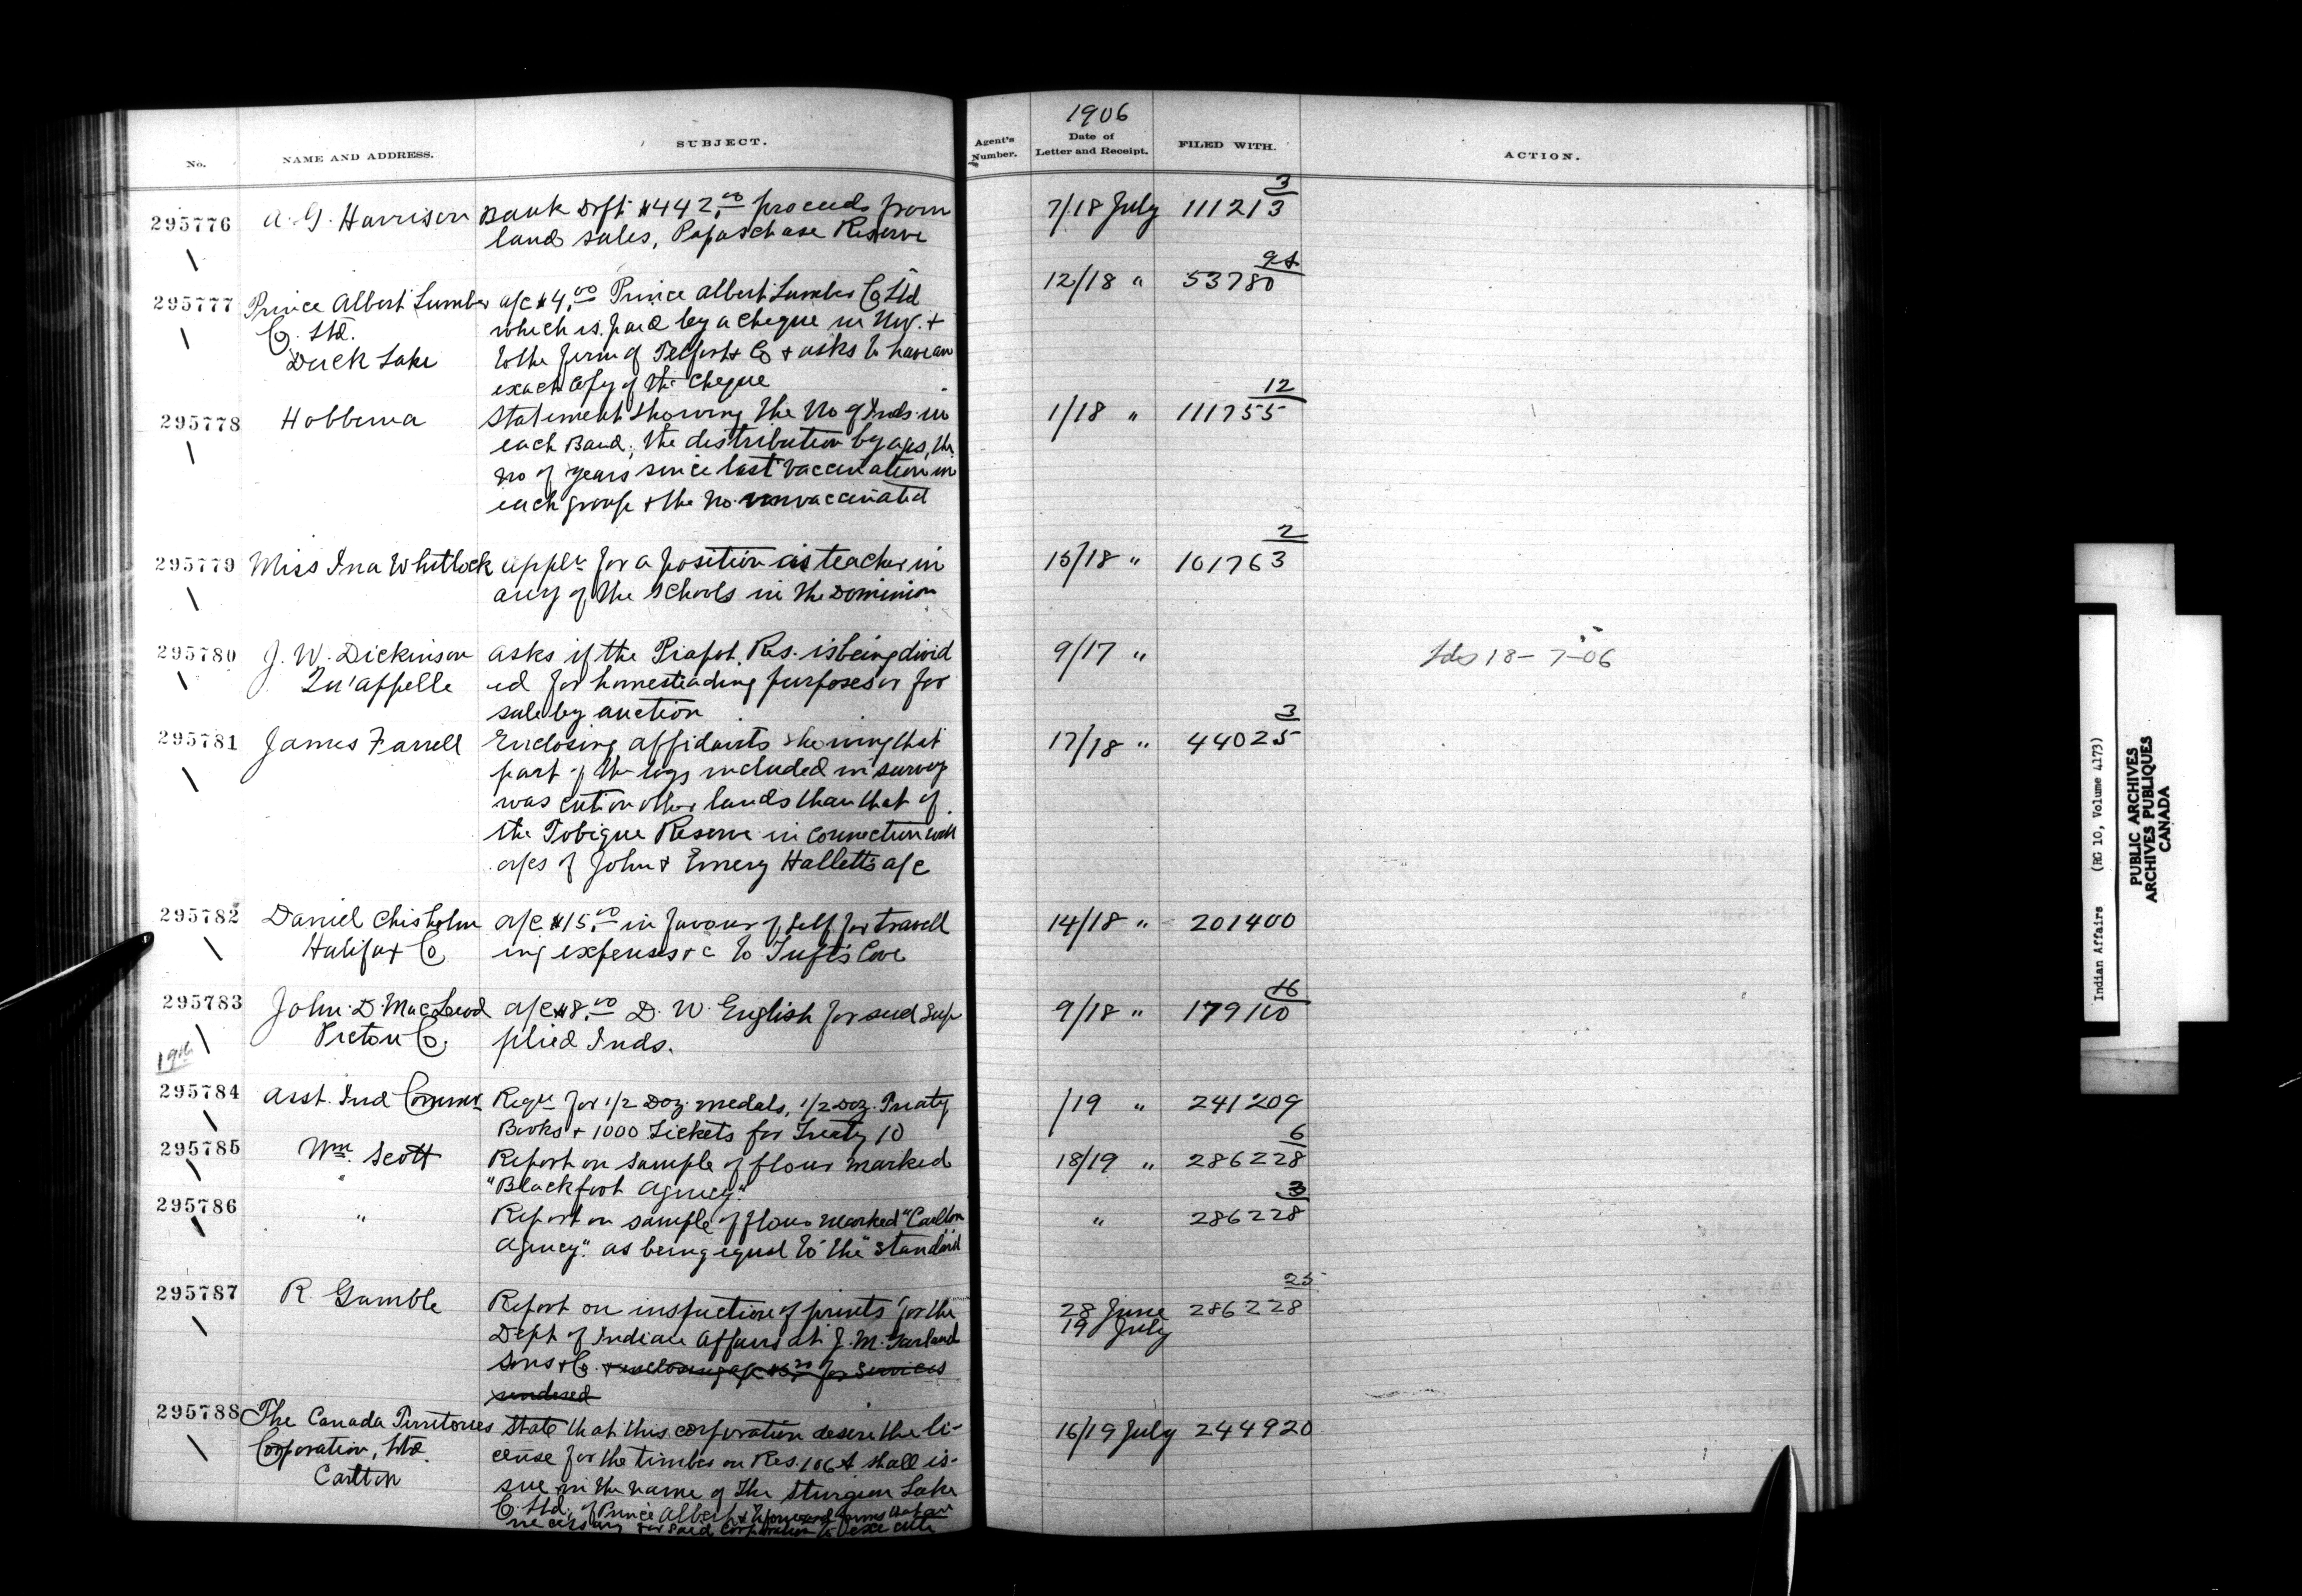 No.
NAME AND ADDRESS.
SUBJECT.
295776
A. G. Harrison
Bank Dft. $442.00 proceeds from
land sales, Papaschase Reserve
295777
Prince Albert Lumber
Co. Ltd.
Duck Lake
a/c $4.00 Prince Albert Lumber Co Ltd
which is paid by a cheque in Nov. +
to the firm of + Co + asks to have an
exact copy of the cheque
295778
Hobbema
Statement showing the No of Inds. in
each Band, the distribution by ages, the
no of years since last vaccination in
each group + the no. unvaccinated
295779
Miss Ina Whitlock
appln for a position as teacher in
any of the schools in the Dominion
295780
J. W. Dickinson
Qu'appelle
asks if the Piapot. Res. is being divid
ed for homesteading purposes or for
sale by auction
295781
James Farrell
Enclosing affidavits showing that
part of the logs included in survey
was cut on other lands than that of
the Tobique Reserve in connection with
a/cs of John + Emery Hallett's a/c
295782
Daniel Chisholm
Halifax Co
a/c $15.00 in favour of self for travell
ing expenses &c to Tuft's Cove
295783
John D. MacLeod
Pictou Co.
a/c $8.00 D. W. English for seed sup
plied Inds.
19th
295784
Asst. Ind Commr
Reqn for 1/2 Doz. medals, 1/2 Doz. Treaty
Books + 1000 Tickets for Treaty 10
295785
Wm. Scott
Report on sample of flour marked
"Blackfoot Agency."
295786
"
Report on sample of flour marked "Carlton
Agency." as being equal to the "Standard
295787
R. Gamble
Report on inspection of prints for the
Dept of Indian Affairs at J. M. Garland
Sons + Co. + enclosing a/c for services
rendered
295788
The Canada Territories
Corporation, Ltd.
Carlton
State that this corporation desire the li-
cense for the timber on Res. 106A shall is-
sue in the name of The Sturgeon Lake
Co. Ltd. of Prince Albert + to forward forms that are
necessary for said Corporation to execute
1906
Agent's
Number.
Date of
Letter and Receipt.
FILED WITH.
ACTION.
7/18 July 111213 3
12/18 " 53780
1/18 " 111755 12
15/18 " 101763 2
9/17 " 18-7-06
17/18 " 44025 3
14/18 " 201400
9/18 " 16
/19 " 241209
18/19 " 286228 6
" 286228 3
28 June 286228 25
19 July
16/19 July 244920
Indian Affairs (RG 10, Volume 4173)
PUBLIC ARCHIVES
ARCHIVES PUBLIQUES
CANADA